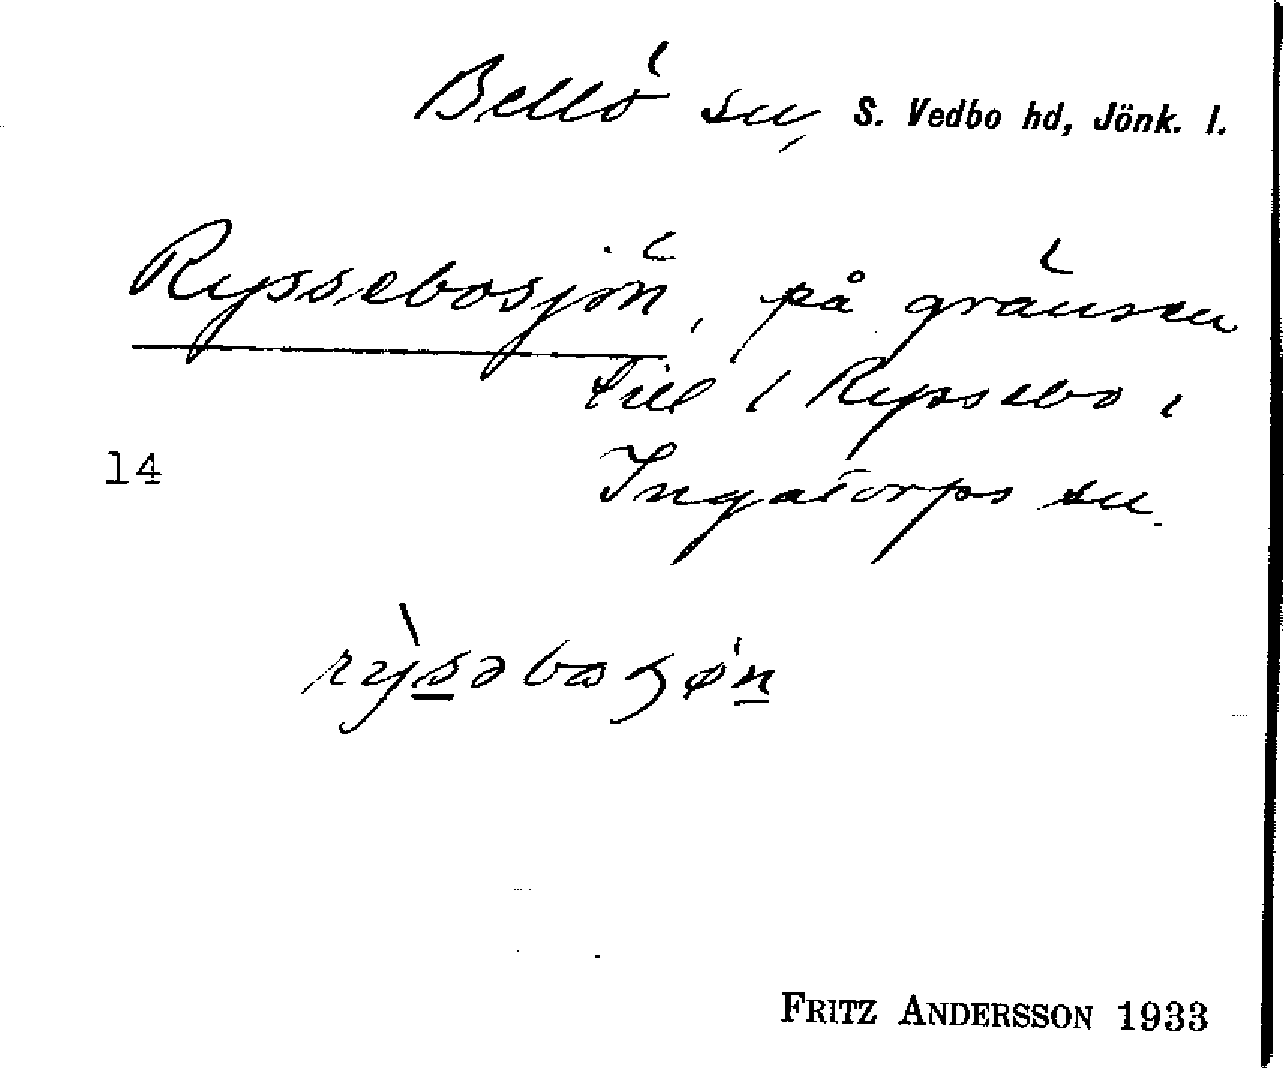 Bellö sn, S. Vedbo hd, Jönk. l.
Ryssebosjön, på gränsen
till / Ryssebo i
14
Ingatorps sn.
FRITZ ANDERSSON 1933